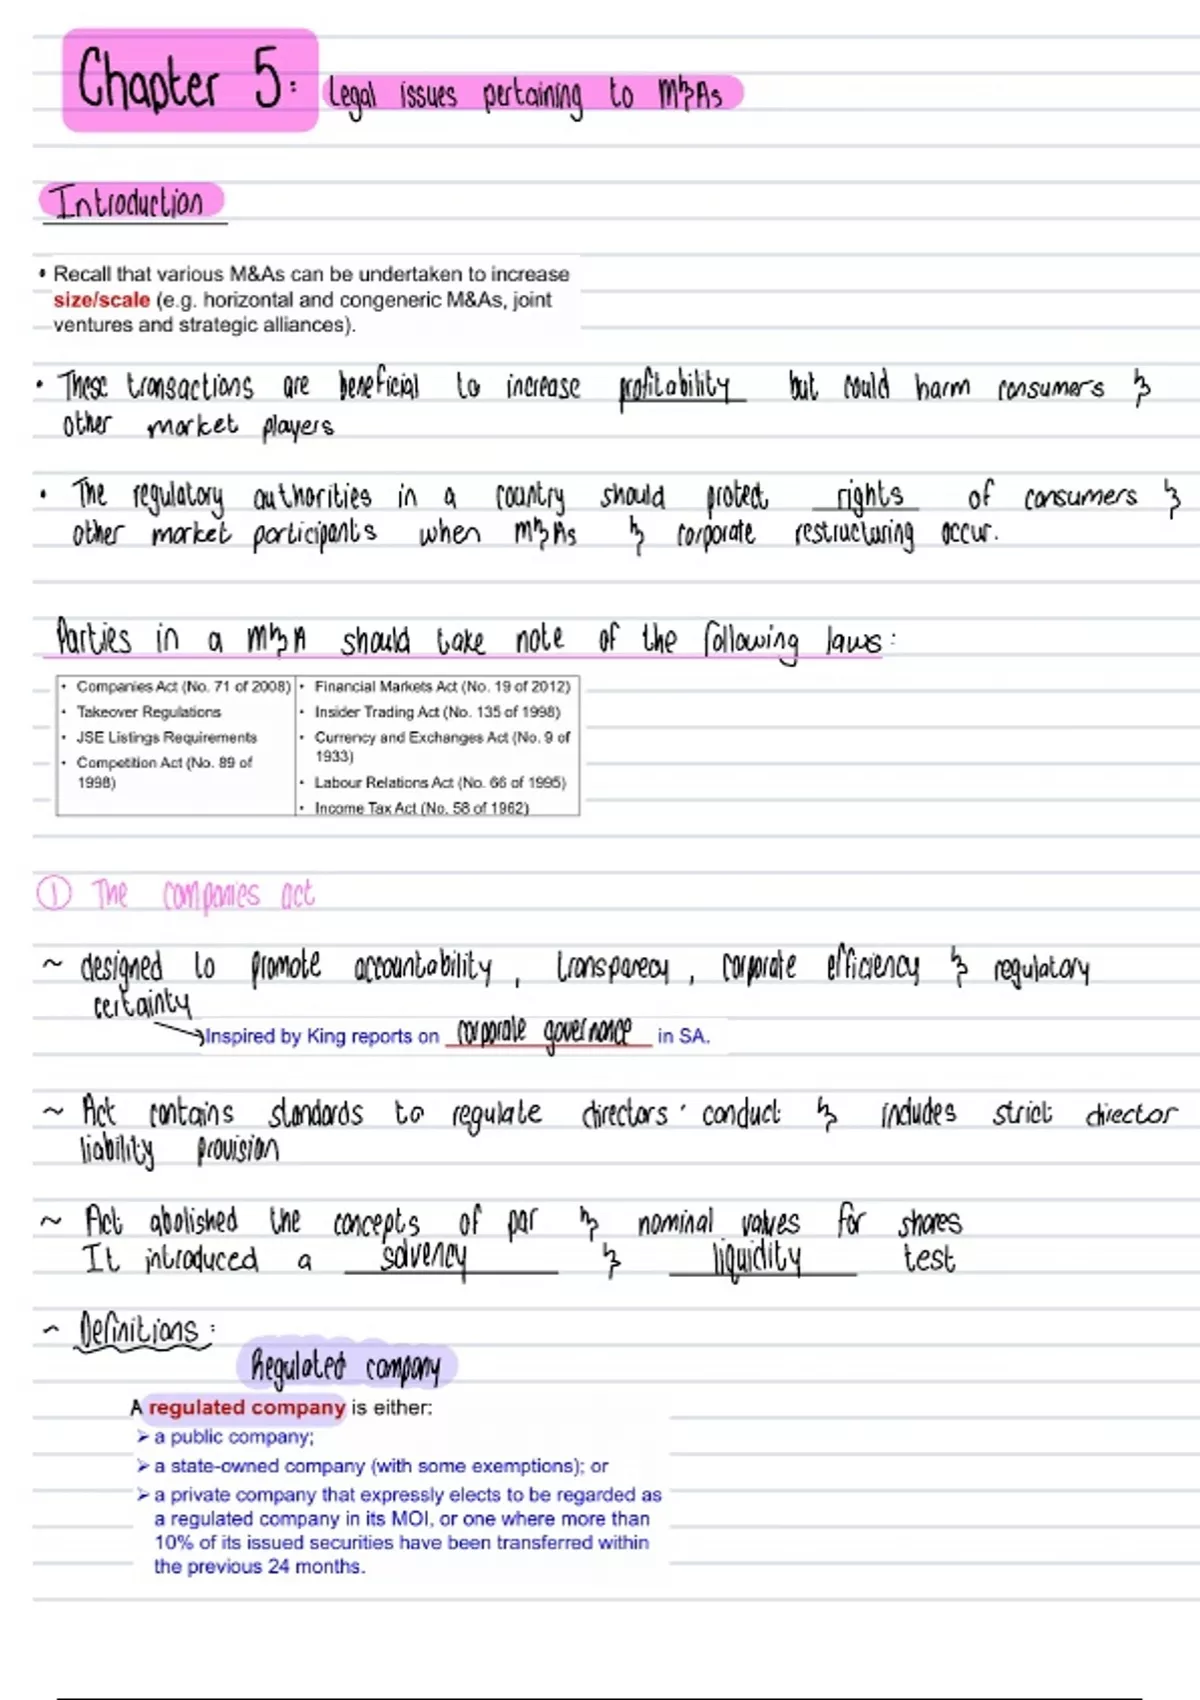 Chapter 5: Legal issues pertaining to M&As
Introduction
• Recall that various M&As can be undertaken to increase
size/scale (e.g. horizontal and congeneric M&As, joint
ventures and strategic alliances).
• These transactions are beneficial to increase profitability but could harm consumers &
other market players
• The regulatory authorities in a country should protect rights of consumers &
other market participants when M&As & corporate restructuring occur.
Parties in a M&A should take note of the following laws:
• Companies Act (No. 71 of 2008)
• Takeover Regulations
• JSE Listings Requirements
• Competition Act (No. 89 of
1998)
• Financial Markets Act (No. 19 of 2012)
• Insider Trading Act (No. 135 of 1998)
• Currency and Exchanges Act (No. 9 of
1933)
• Labour Relations Act (No. 66 of 1995)
• Income Tax Act (No. 58 of 1962)
① The companies act
~ designed to promote accountability, transparecy, corporate efficiency & regulatory
certainty
Inspired by King reports on corporate governance in SA.
~ Act contains standards to regulate directors' conduct & includes strict director
liability provision
~ Act abolished the concepts of par & nominal values for shares
It introduced a solvency & liquidity test
~ Definitions:
Regulated company
A regulated company is either:
➢ a public company;
➢ a state-owned company (with some exemptions); or
➢ a private company that expressly elects to be regarded as
a regulated company in its MOI, or one where more than
10% of its issued securities have been transferred within
the previous 24 months.